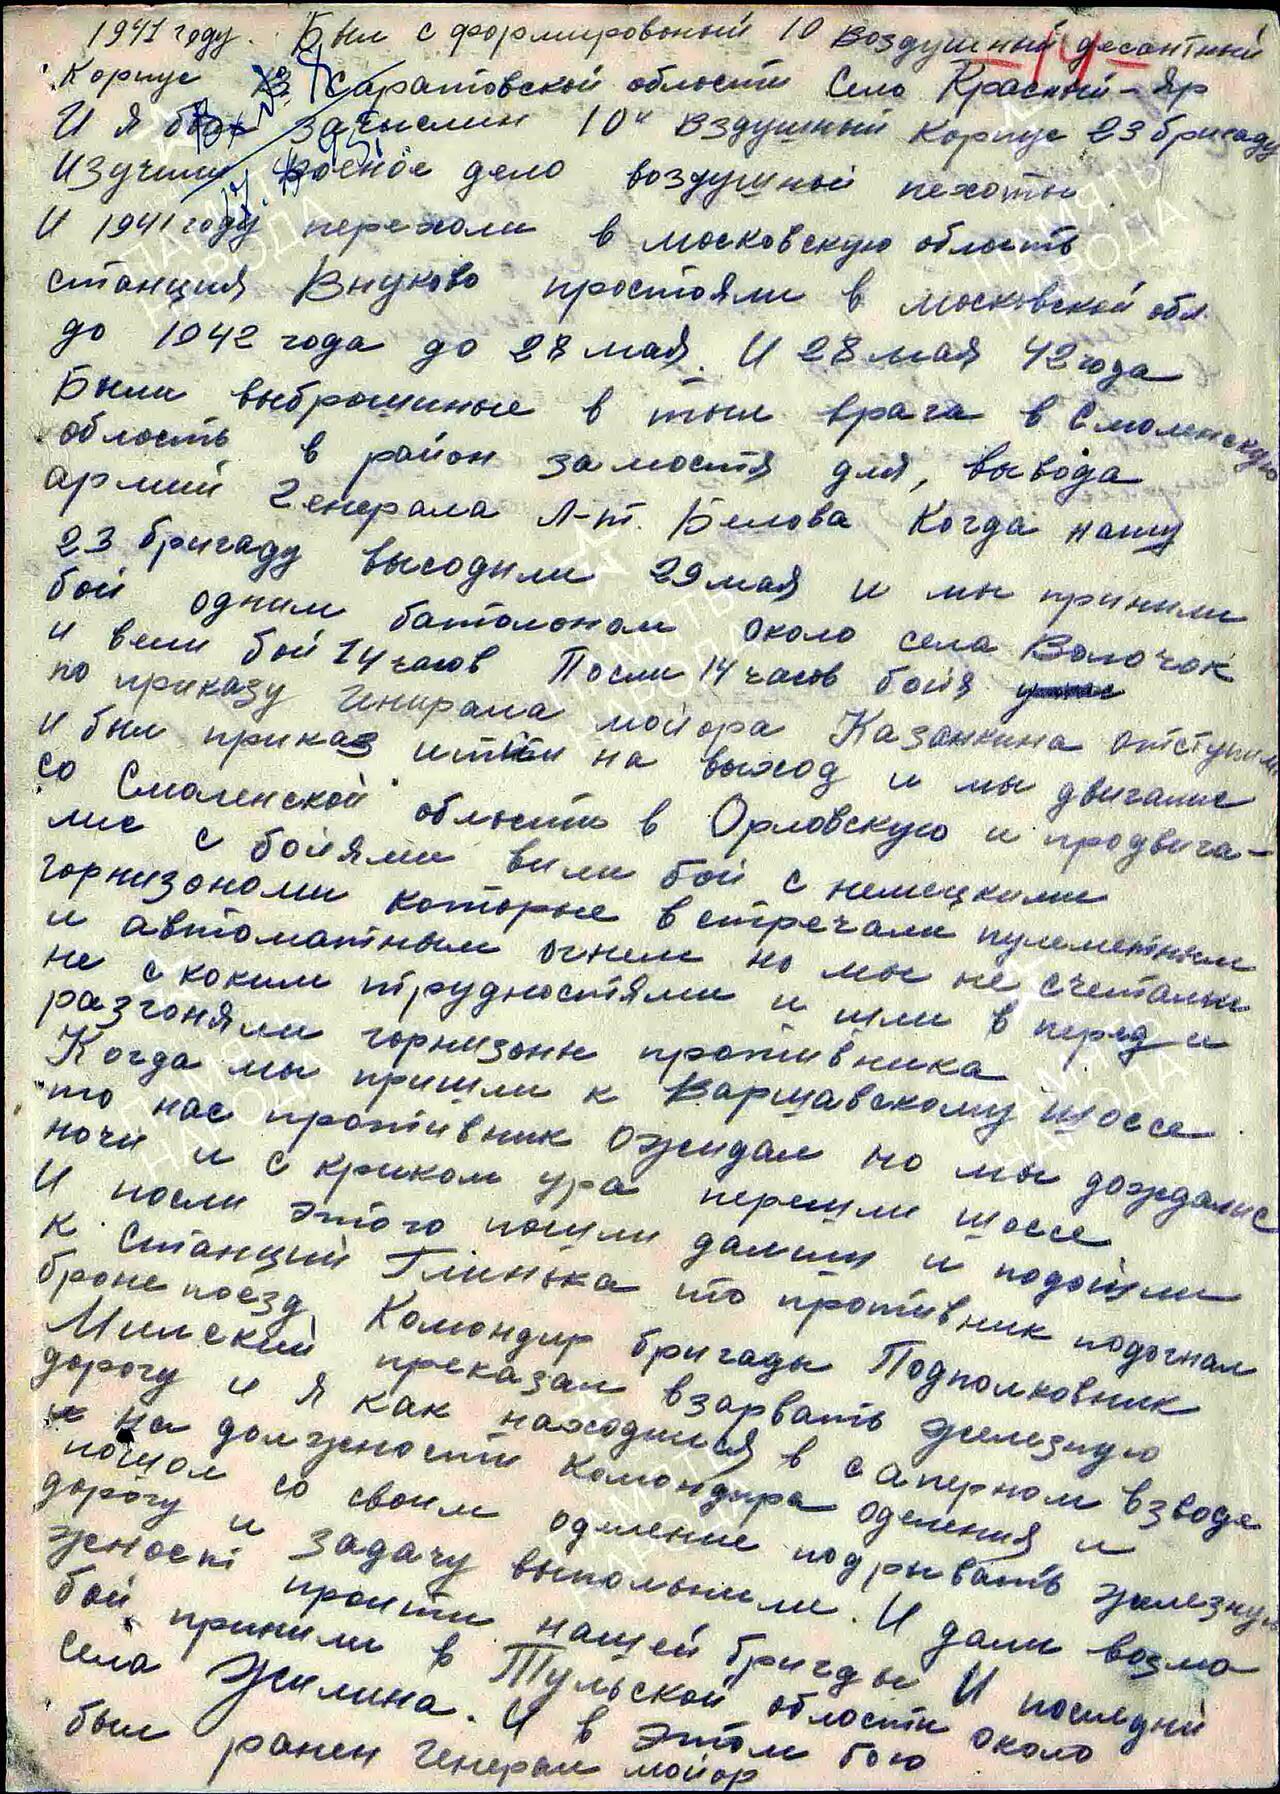 1941 году. Был сформировоный 10 воздушный десантный
Корпус Саратовской области Село Красный-яр
И я был зачислин 10й вздушный корпус 23 бригаду
Изучили военое дело воздушной пехоты
И 1941 году перехали в московскую область
станция Внуково простояли в московской обл.
до 1942 года до 28 мая. И 28 мая 42 года
Были выброшиные в тыл врага в Смоленскую
область в район замостя для, вывода
армий Генерала Л-т. Белова Когда нашу
23 бригаду высодили 29 мая и мы принили
бой одним батолоном около села Волочок
и вели бой 14 часов Посли 14 часов бойя
по приказу Генирала мойора Казанкина отступили
и был приказ итти на выход и мы двигалис
со Смоленской области в Орловскую и продвига-
лис с бойями вили бой с немецкими
горнизонами которые встречали пулеметным
и автоматным огнем но мы не счетались
не с коким трудностями и шли в перед и
разгоняли горнизоны противника
Когда мы пришли к Варшавскому шоссе
то нас противник ожидал но мы дождалис
ночи и с криком ура перешли шоссе
И посли этого пошли далши и подошли
к станций Глинька то противник подогнал
броне поезд Командир бригады Подполковник
Милский преказал взарвать железную
дорогу и я как находился в саперном взводе
на должности командира оделения и
пошол со своим одление подрывать железную
дорогу и задачу выполнили. И дали возмо
жност проити нашей бригды И последни
бой принили в Тульской области около
села Жилина. И в этом бою
был ранен генерал мойор
ПАМЯТЬ НАРОДА
ПАМЯТЬ НАРОДА
ПАМЯТЬ НАРОДА
ПАМЯТЬ НАРОДА
ПАМЯТЬ НАРОДА
ПАМЯТЬ НАРОДА